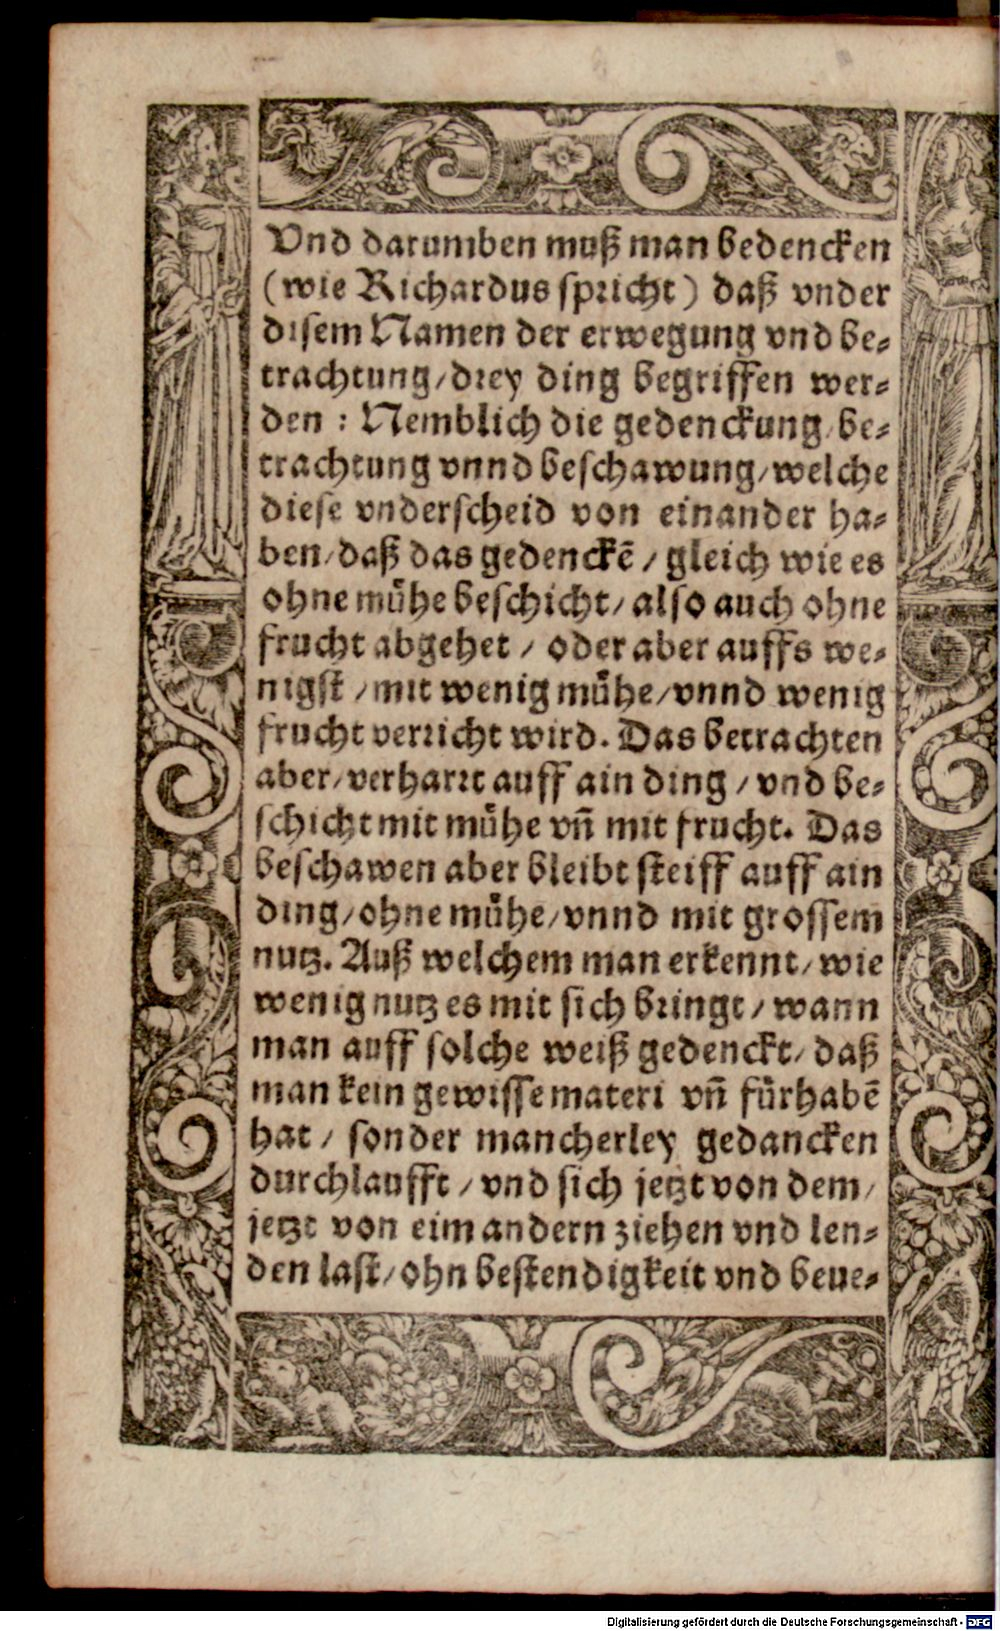 Vnd darumben muß man bedencken
(wie Richardus spricht) daß vnder
disem Namen der erwegung vnd be⸗
trachtung/drey ding begriffen wer⸗
den : Nemblich die gedenckung/be⸗
trachtung vnnd beschawung/welche
diese vnderscheid von einander ha⸗
ben/daß das gedenckē / gleich wie es
ohne mühe beschicht/also auch ohne
frucht abgehet / oder aber auffs we⸗
nigst / mit wenig mühe/vnnd wenig
frucht verricht wird. Das betrachten
aber/verharrt auff ain ding / vnd be⸗
schicht mit mühe vñ mit frucht. Das
beschawen aber bleibt steiff auff ain
ding/ohne mühe/vnnd mit grossem
nutz. Auß welchem man erkennt/wie
wenig nutz es mit sich bringt / wann
man auff solche weiß gedenckt/daß
man kein gewisse materi vñ fürhabē
hat / sonder mancherley gedancken
durchlaufft / vnd sich jetzt von dem/
jetzt von eim andern ziehen vnd len⸗
den last/ohn bestendigkeit vnd beue⸗
Digitalisierung gefördert durch die Deutsche Forschungsgemeinschaft - DFG